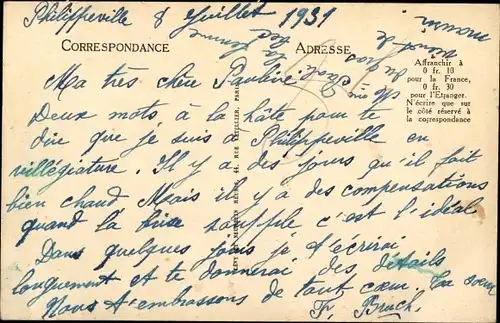 Philippeville 8 Juillet 1931
CORRESPONDANCE
ADRESSE
Affranchir à
0 fr. 10
pour la France,
0 fr. 30
pour l'Etranger.
N'écrire que sur
le côté réservé à
la correspondance
Ma très chère Pauline
Deux mots à la hâte pour te
dire que je suis à Philippeville en
villégiature. Il y a des jours qu'il fait
bien chaud Mais il y a des compensations
quand la brise souffle, c'est l'idéal
Dans quelques jours je t'écrirai
longuement et te donnerai des détails
Nous t'embrassons de tout cœur. Ta sœur
F. Bruch.